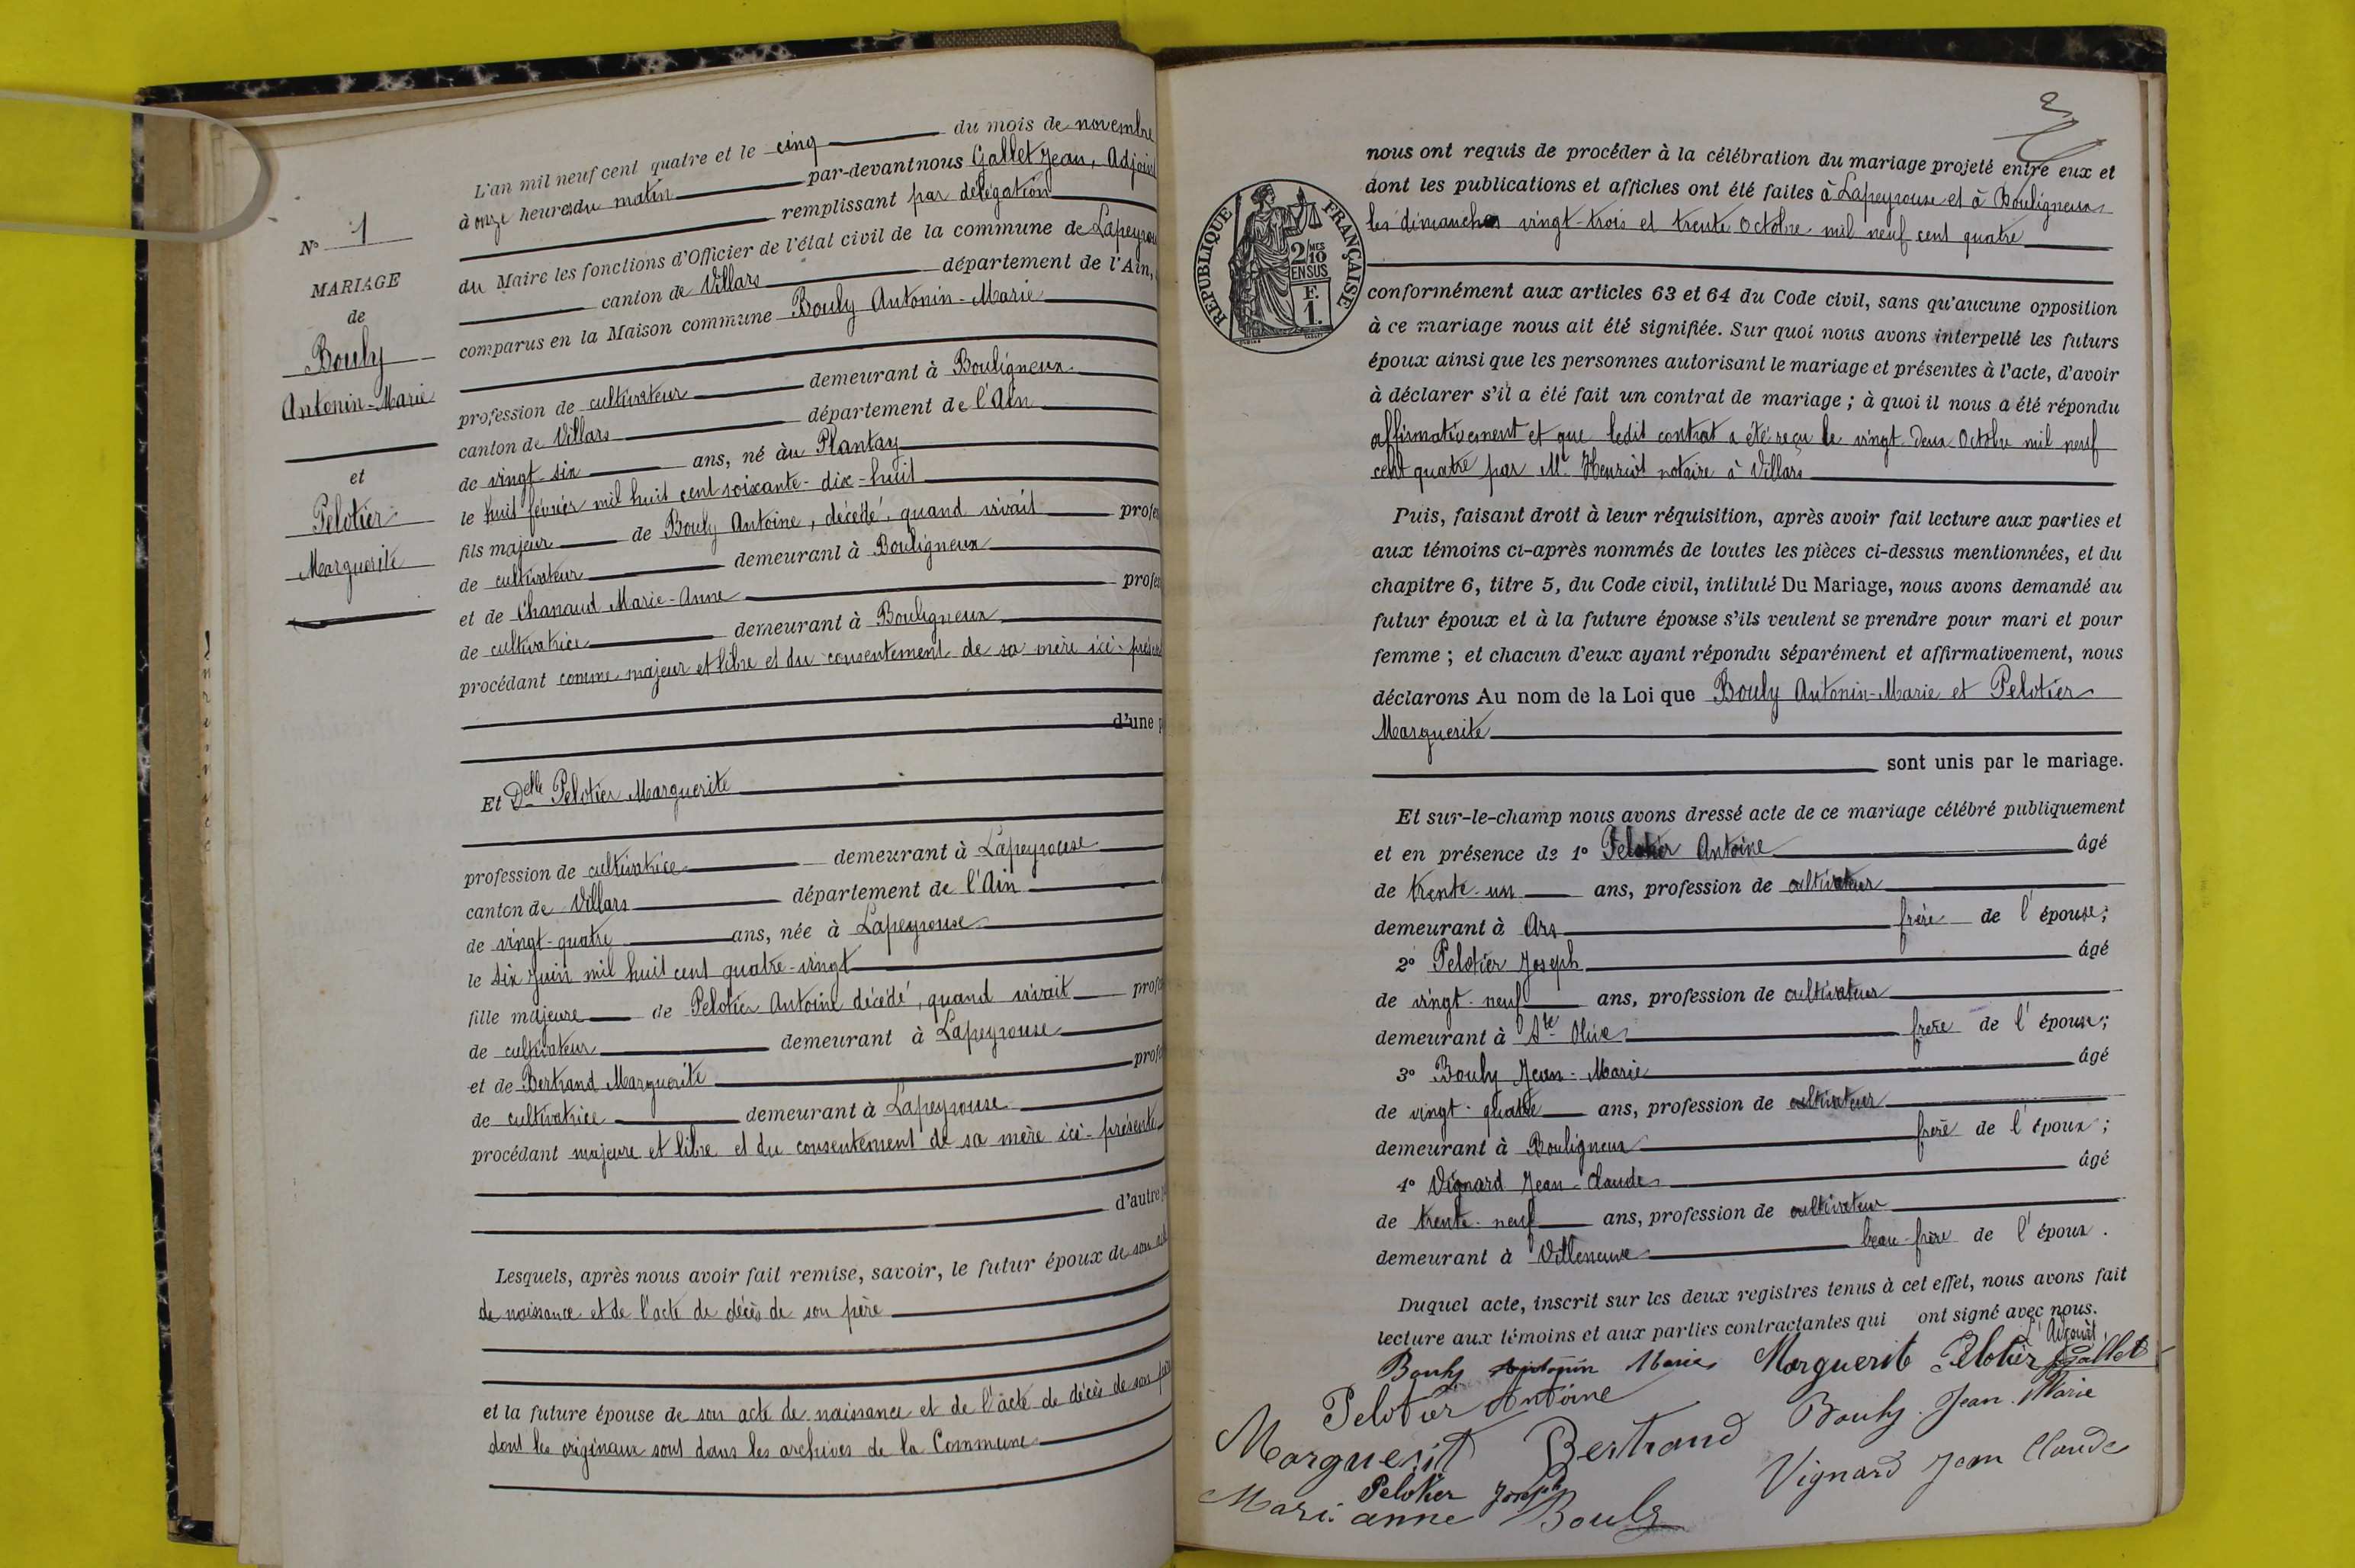 N° 1
MARIAGE
de
Bouly
Antonin-Marie
et
Pelotier
Marguerite
L'an mil neuf cent quatre et le cinq du mois de novembre
à onze heures du matin par-devant nous Gallet Jean, Adjoint
remplissant par délégation
du Maire les fonctions d'Officier de l'état civil de la commune de Lapeyrou
canton de Villars département de l'Ain,
comparus en la Maison commune Bouly Antonin-Marie
profession de cultivateur demeurant à Bouligneux
canton de Villars département de l'Ain
de vingt-six ans, né au Plantay
le huit février mil huit cent soixante-dix-huit
fils majeur de Bouly Antoine, décédé, quand vivait profes
de cultivateur demeurant à Bouligneux
et de Chanaud Marie-Anne profes
de cultivatrice demeurant à Bouligneux
procédant comme majeur et libre et du consentement de sa mère ici-présen
d'une p
Et Delle Pelotier Marguerite
profession de cultivatrice demeurant à Lapeyrouse
canton de Villars département de l'Ain
de vingt-quatre ans, née à Lapeyrouse
le six Juin mil huit cent quatre-vingt
fille majeure de Pelotier Antoine décédé, quand vivait profe
de cultivateur demeurant à Lapeyrouse
et de Bertrand Marguerite profe
de cultivatrice demeurant à Lapeyrouse
procédant majeure et libre et du consentement de sa mère ici-présente
d'autre p
Lesquels, après nous avoir fait remise, savoir, le futur époux de son act
de naissance et de l'acte de décès de son père
et la future épouse de son acte de naissance et de l'acte de décès de son pèr
dont les originaux sont dans les archives de la Commune
2
RÉPUBLIQUE FRANÇAISE
2 MES
10
EN SUS
F.
1.
nous ont requis de procéder à la célébration du mariage projeté entre eux et
dont les publications et affiches ont été faites à Lapeyrouse et à Bouligneux
les dimanches vingt-trois et trente Octobre mil neuf cent quatre
conformément aux articles 63 et 64 du Code civil, sans qu'aucune opposition
à ce mariage nous ait été signifiée. Sur quoi nous avons interpellé les futurs
époux ainsi que les personnes autorisant le mariage et présentes à l'acte, d'avoir
à déclarer s'il a été fait un contrat de mariage ; à quoi il nous a été répondu
affirmativement et que ledit contrat a été reçu le vingt-deux Octobre mil neuf
cent quatre par Me Henriot notaire à Villars
Puis, faisant droit à leur réquisition, après avoir fait lecture aux parties et
aux témoins ci-après nommés de toutes les pièces ci-dessus mentionnées, et du
chapitre 6, titre 5, du Code civil, intitulé Du Mariage, nous avons demandé au
futur époux et à la future épouse s'ils veulent se prendre pour mari et pour
femme ; et chacun d'eux ayant répondu séparément et affirmativement, nous
déclarons Au nom de la Loi que Bouly Antonin-Marie et Pelotier
Marguerite
sont unis par le mariage.
Et sur-le-champ nous avons dressé acte de ce mariage célébré publiquement
et en présence de 1° Pelotier Antoine âgé
de trente-un ans, profession de cultivateur
demeurant à Ars frère de l'épouse;
2° Pelotier Joseph âgé
de vingt-neuf ans, profession de cultivateur
demeurant à Ste Olive frère de l'épouse;
3° Bouly Jean-Marie âgé
de vingt-quatre ans, profession de cultivateur
demeurant à Bouligneux frère de l'époux;
4° Vignard Jean-Claude âgé
de trente-neuf ans, profession de cultivateur
demeurant à Villeneuve beau-frère de l'époux.
Duquel acte, inscrit sur les deux registres tenus à cet effet, nous avons fait
lecture aux témoins et aux parties contractantes qui ont signé avec nous.
L'Adjoint,
Bouly Antonin Marie Marguerite Pelotier Gallet
Pelotier Antoine Bouly Jean Marie
Marguerit Bertrand
Pelotier Joseph Vignard Jean Claude
Mari anne Bouly